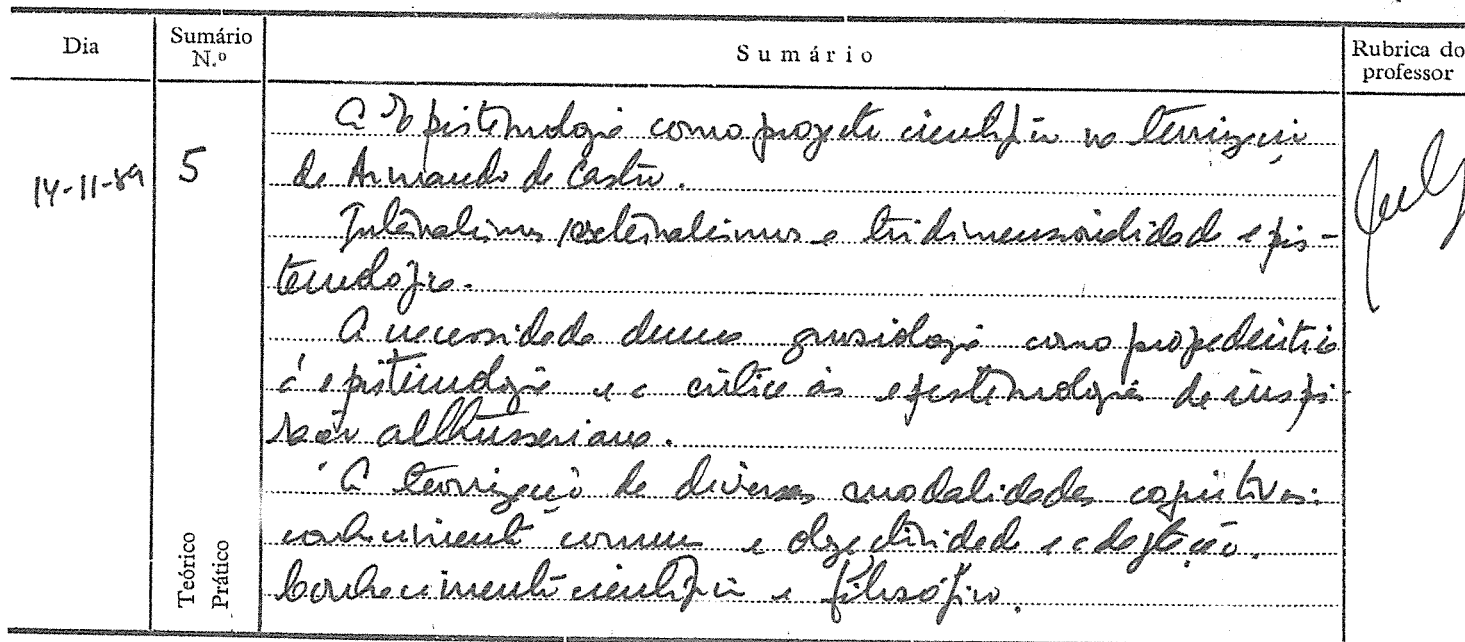 Dia Sumário N.º Sumário Rubrica do professor
14-11-89 5
A Epistemologia como projecto científico na teorização
de Armando de Castro.
Internalismo/externalismo e tridimensionalidade epis-
temológica.
A necessidade duma gnosiologia como propedêutica
à epistemologia e a crítica às epistemologias de inspi-
ração althusseriana.
A teorização de diversas modalidades cognitivas:
conhecimento comum e objectividade e adaptação.
Conhecimento científico e filosófico.
Teórico
Prático